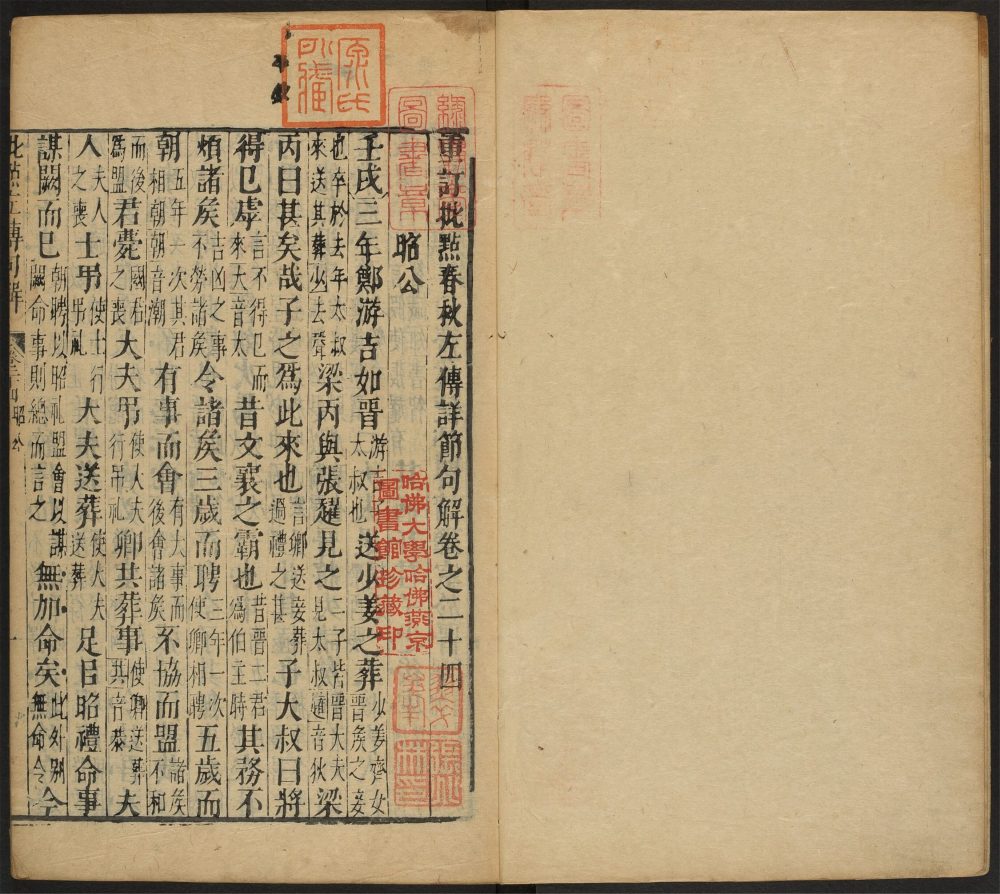 重訂批點春秋左傳詳節句解卷之二十四
昭公
壬戌三年鄭游吉如晉游吉子太叔也送少姜之葬少姜齊女晉矦之妾
也卒於去年太叔來送其葬少去聲梁丙與張趯見之二子皆晉大夫見太叔趯音狄梁
丙曰甚矣哉子之為此來也言卿送妾葬過禮之甚子大叔曰將
得已虖言不得已而來大音太昔文襄之霸也昔晉二君為伯主時其務不
煩諸矦吉凶之事不勞諸矦令諸矦三歲而聘三年一次使卿相聘五歲而
朝五年一次其君相朝朝音潮有事而會有大事而後會諸矦不協而盟諸矦不和
而後為盟君薨國君之喪大夫弔使大夫行弔礼卿共葬事使卿送葬共音恭夫
人夫人之喪士弔使士行弔礼大夫送葬使大夫送葬足㠯昭禮命事
謀闕而已朝聘以昭礼盟會以謀闕命事則總而言之無加命矣此外別無命令今
昭公
哈佛大學哈佛燕京
圖書館珍藏印
圖書章